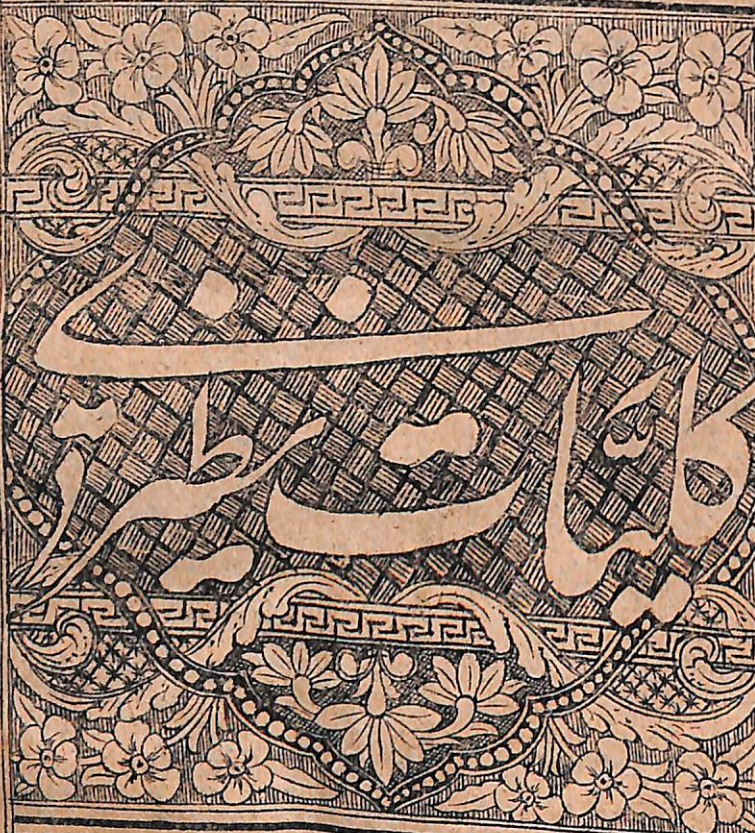 کلیّات نظیری